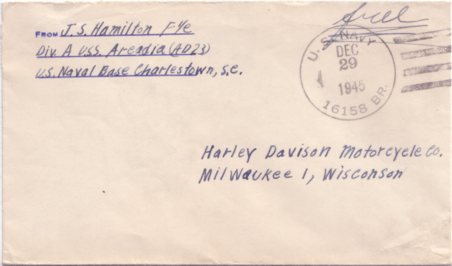 free
FROM J.S. Hamilton F4c
Div A USS. Arcadia (AD23)
U.S. Naval Base Charlestown, S.C.
U.S. NAVY
DEC
29
1945
16158 BR.
Harley Davison Motorcycle Co.
Milwaukee 1, Wisconson